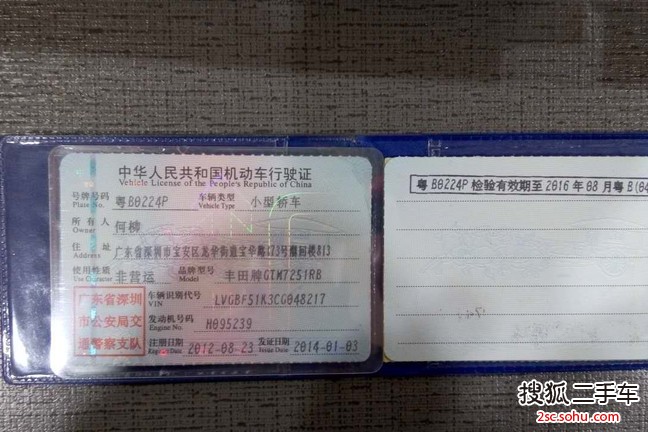 中华人民共和国机动车行驶证
Vehicle License of the People's Republic of China
号牌号码 粤B0224P 车辆类型 小型轿车
Plate No. Vehicle Type
所有人 何柳
Owner
住址 广东省深圳市宝安区龙华街道宝华路173号 楼813
Address
使用性质 非营运 品牌型号 丰田牌GTM7251RB
Use Character Model
广东省深圳
市公安局交
通警察支队
车辆识别代号 LVGBF51K3CG048217
VIN
发动机号码 H095239
Engine No.
注册日期 2012-08-23 发证日期 2014-01-03
Register Date Issue Date
粤B0224P 检验有效期至 2016 年 08 月 粤B(04
搜狐二手车
2sc.sohu.com